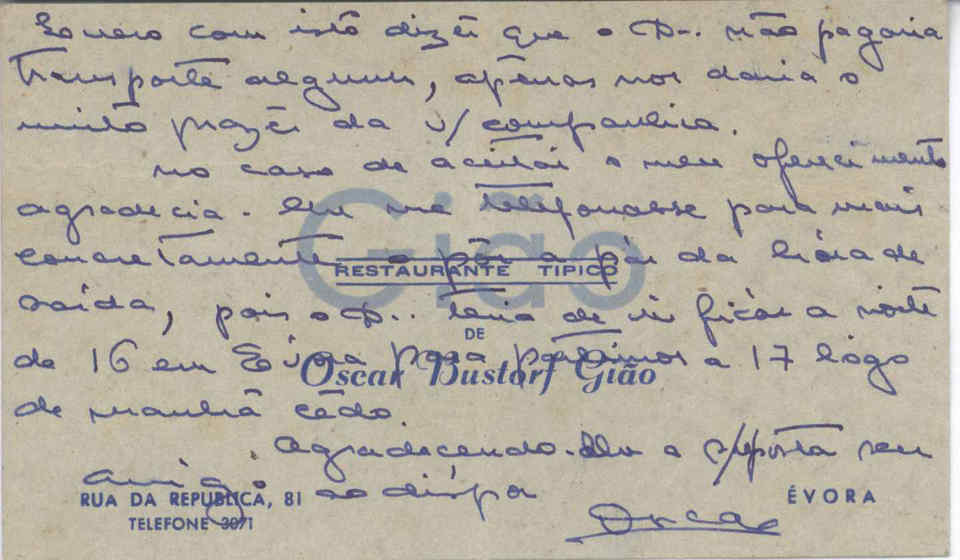 Quero com isto dizêr que o D.. não pagaria
transporte algum, apenas nos daria o
muito prazêr da v/ companhia.
No caso de aceitar o meu oferecimento
agradecia-lhe me telefonasse para mais
concretamente o pôr a pár da hóra de
saída, pois o D.. teria de vir ficár a noite
de 16 em Évora para partirmos a 17 lógo
de manhã cêdo.
Agradecendo-lhe a r/posta seu
amigo ao dispor
Oscar
Gião
RESTAURANTE TIPICO
DE
Oscar Bustorf Gião
RUA DA REPUBLICA, 81
TELEFONE 3071
ÉVORA